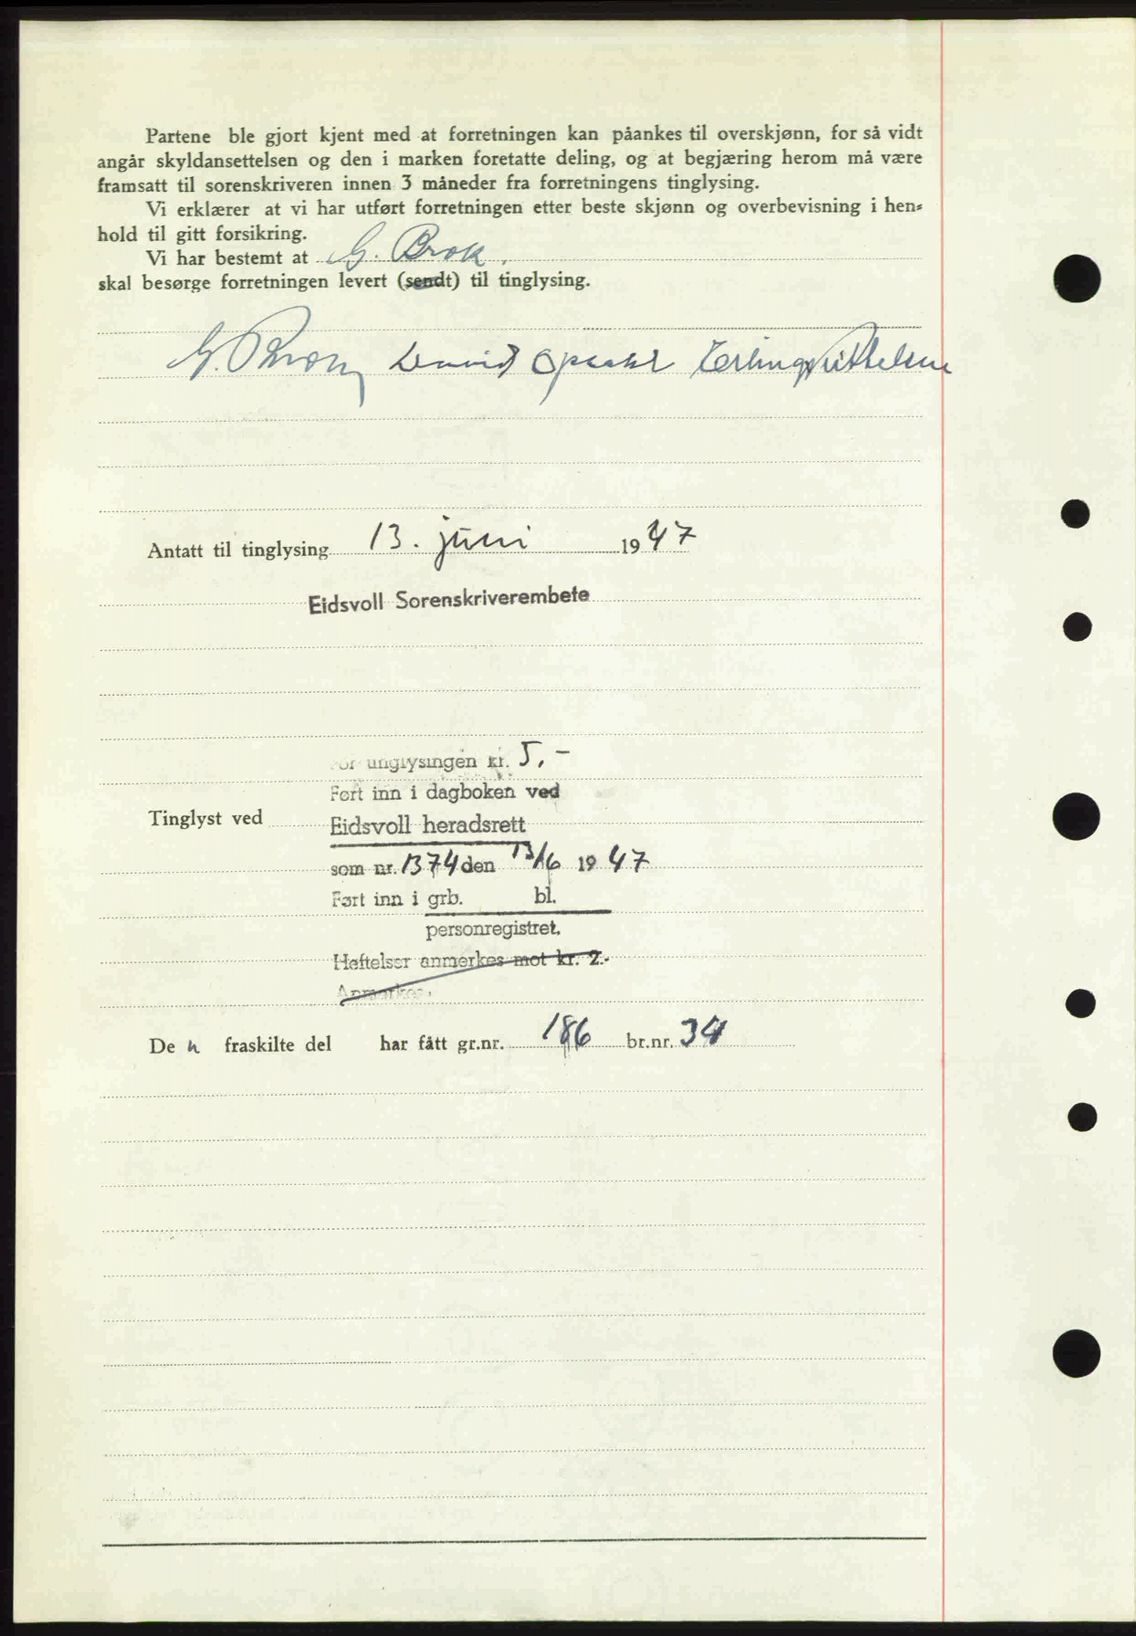 Partene ble gjort kjent med at forretningen kan påankes til overskjønn, for så vidt
angår skyldansettelsen og den i marken foretatte deling, og at begjæring herom må være
framsatt til sorenskriveren innen 3 måneder fra forretningens tinglysing.
Vi erklærer at vi har utført forretningen etter beste skjønn og overbevisning i hen-
hold til gitt forsikring.
Vi har bestemt at G. Brok.
skal besørge forretningen levert (sendt) til tinglysing.
G. Brok
Antatt til tinglysing 13. juni 1947
Eidsvoll Sorenskriverembete
For tinglysingen kr. 5,-
Ført inn i dagboken ved
Tinglyst ved Eidsvoll heradsrett
som nr. 1374 den 13/6 1947
Ført inn i grb. bl.
personregistret.
Heftelser anmerkes mot kr. 2.-
Anmerkes.
De n fraskilte del har fått gr.nr. 186 br.nr. 34